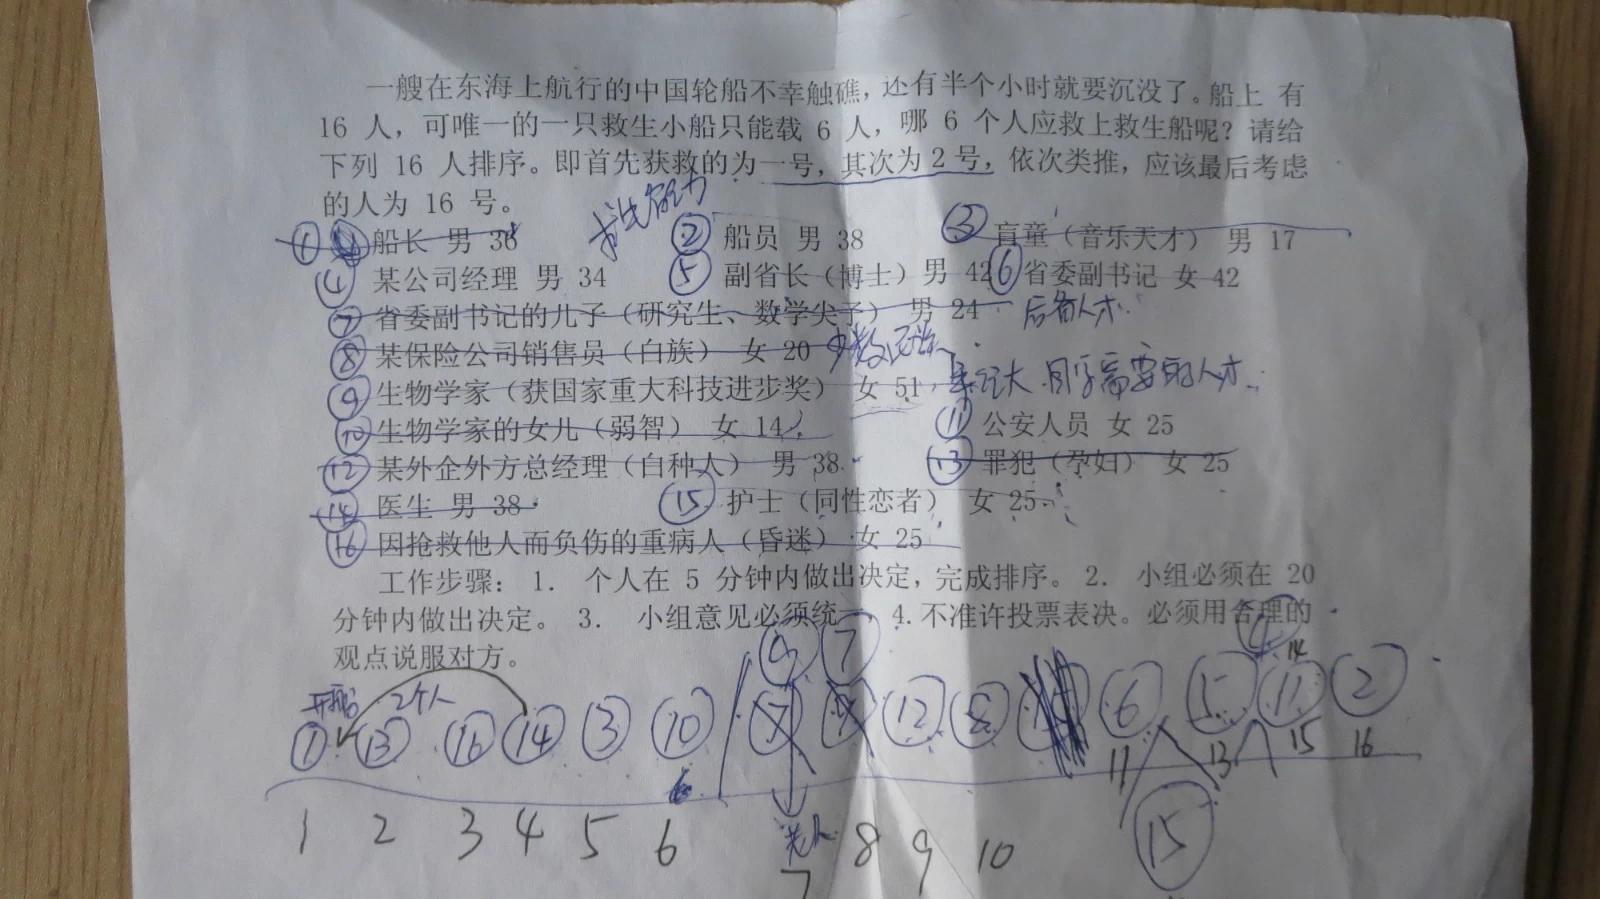 一艘在东海上航行的中国轮船不幸触礁，还有半个小时就要沉没了。船上 有
16 人，可唯一的一只救生小船只能载 6 人，哪 6 个人应救上救生船呢？请给
下列 16 人排序。即首先获救的为一号，其次为 2 号，依次类推，应该最后考虑
的人为 16 号。
求生能力
① 船长 男 36 ② 船员 男 38 ③ 盲童（音乐天才） 男 17
④ 某公司经理 男 34 ⑤ 副省长（博士）男 42 ⑥ 省委副书记 女 42
⑦ 省委副书记的儿子（研究生、数学尖子） 男 24 后备人才
⑧ 某保险公司销售员（白族） 女 20 少数民族
⑨ 生物学家（获国家重大科技进步奖） 女 51 大 国家需要的人才
⑩ 生物学家的女儿（弱智） 女 14 ⑪ 公安人员 女 25
⑫ 某外企外方总经理（白种人） 男 38 ⑬ 罪犯（孕妇） 女 25
⑭ 医生 男 38 ⑮ 护士（同性恋者） 女 25
⑯ 因抢救他人而负伤的重病人（昏迷） 女 25
工作步骤： 1. 个人在 5 分钟内做出决定，完成排序。 2. 小组必须在 20
分钟内做出决定。 3. 小组意见必须统一，4.不准许投票表决。必须用合理的
观点说服对方。
⑨ ⑦ ④ 14
开船 2个人
① ⑬ ⑯ ⑭ ③ ⑩ ⑦ ⑨ ⑫ ⑧ ⑥ ⑤ ⑪ ② 
11 13 15 16
1 2 3 4 5 6 老人 8 9 10 ⑮
7